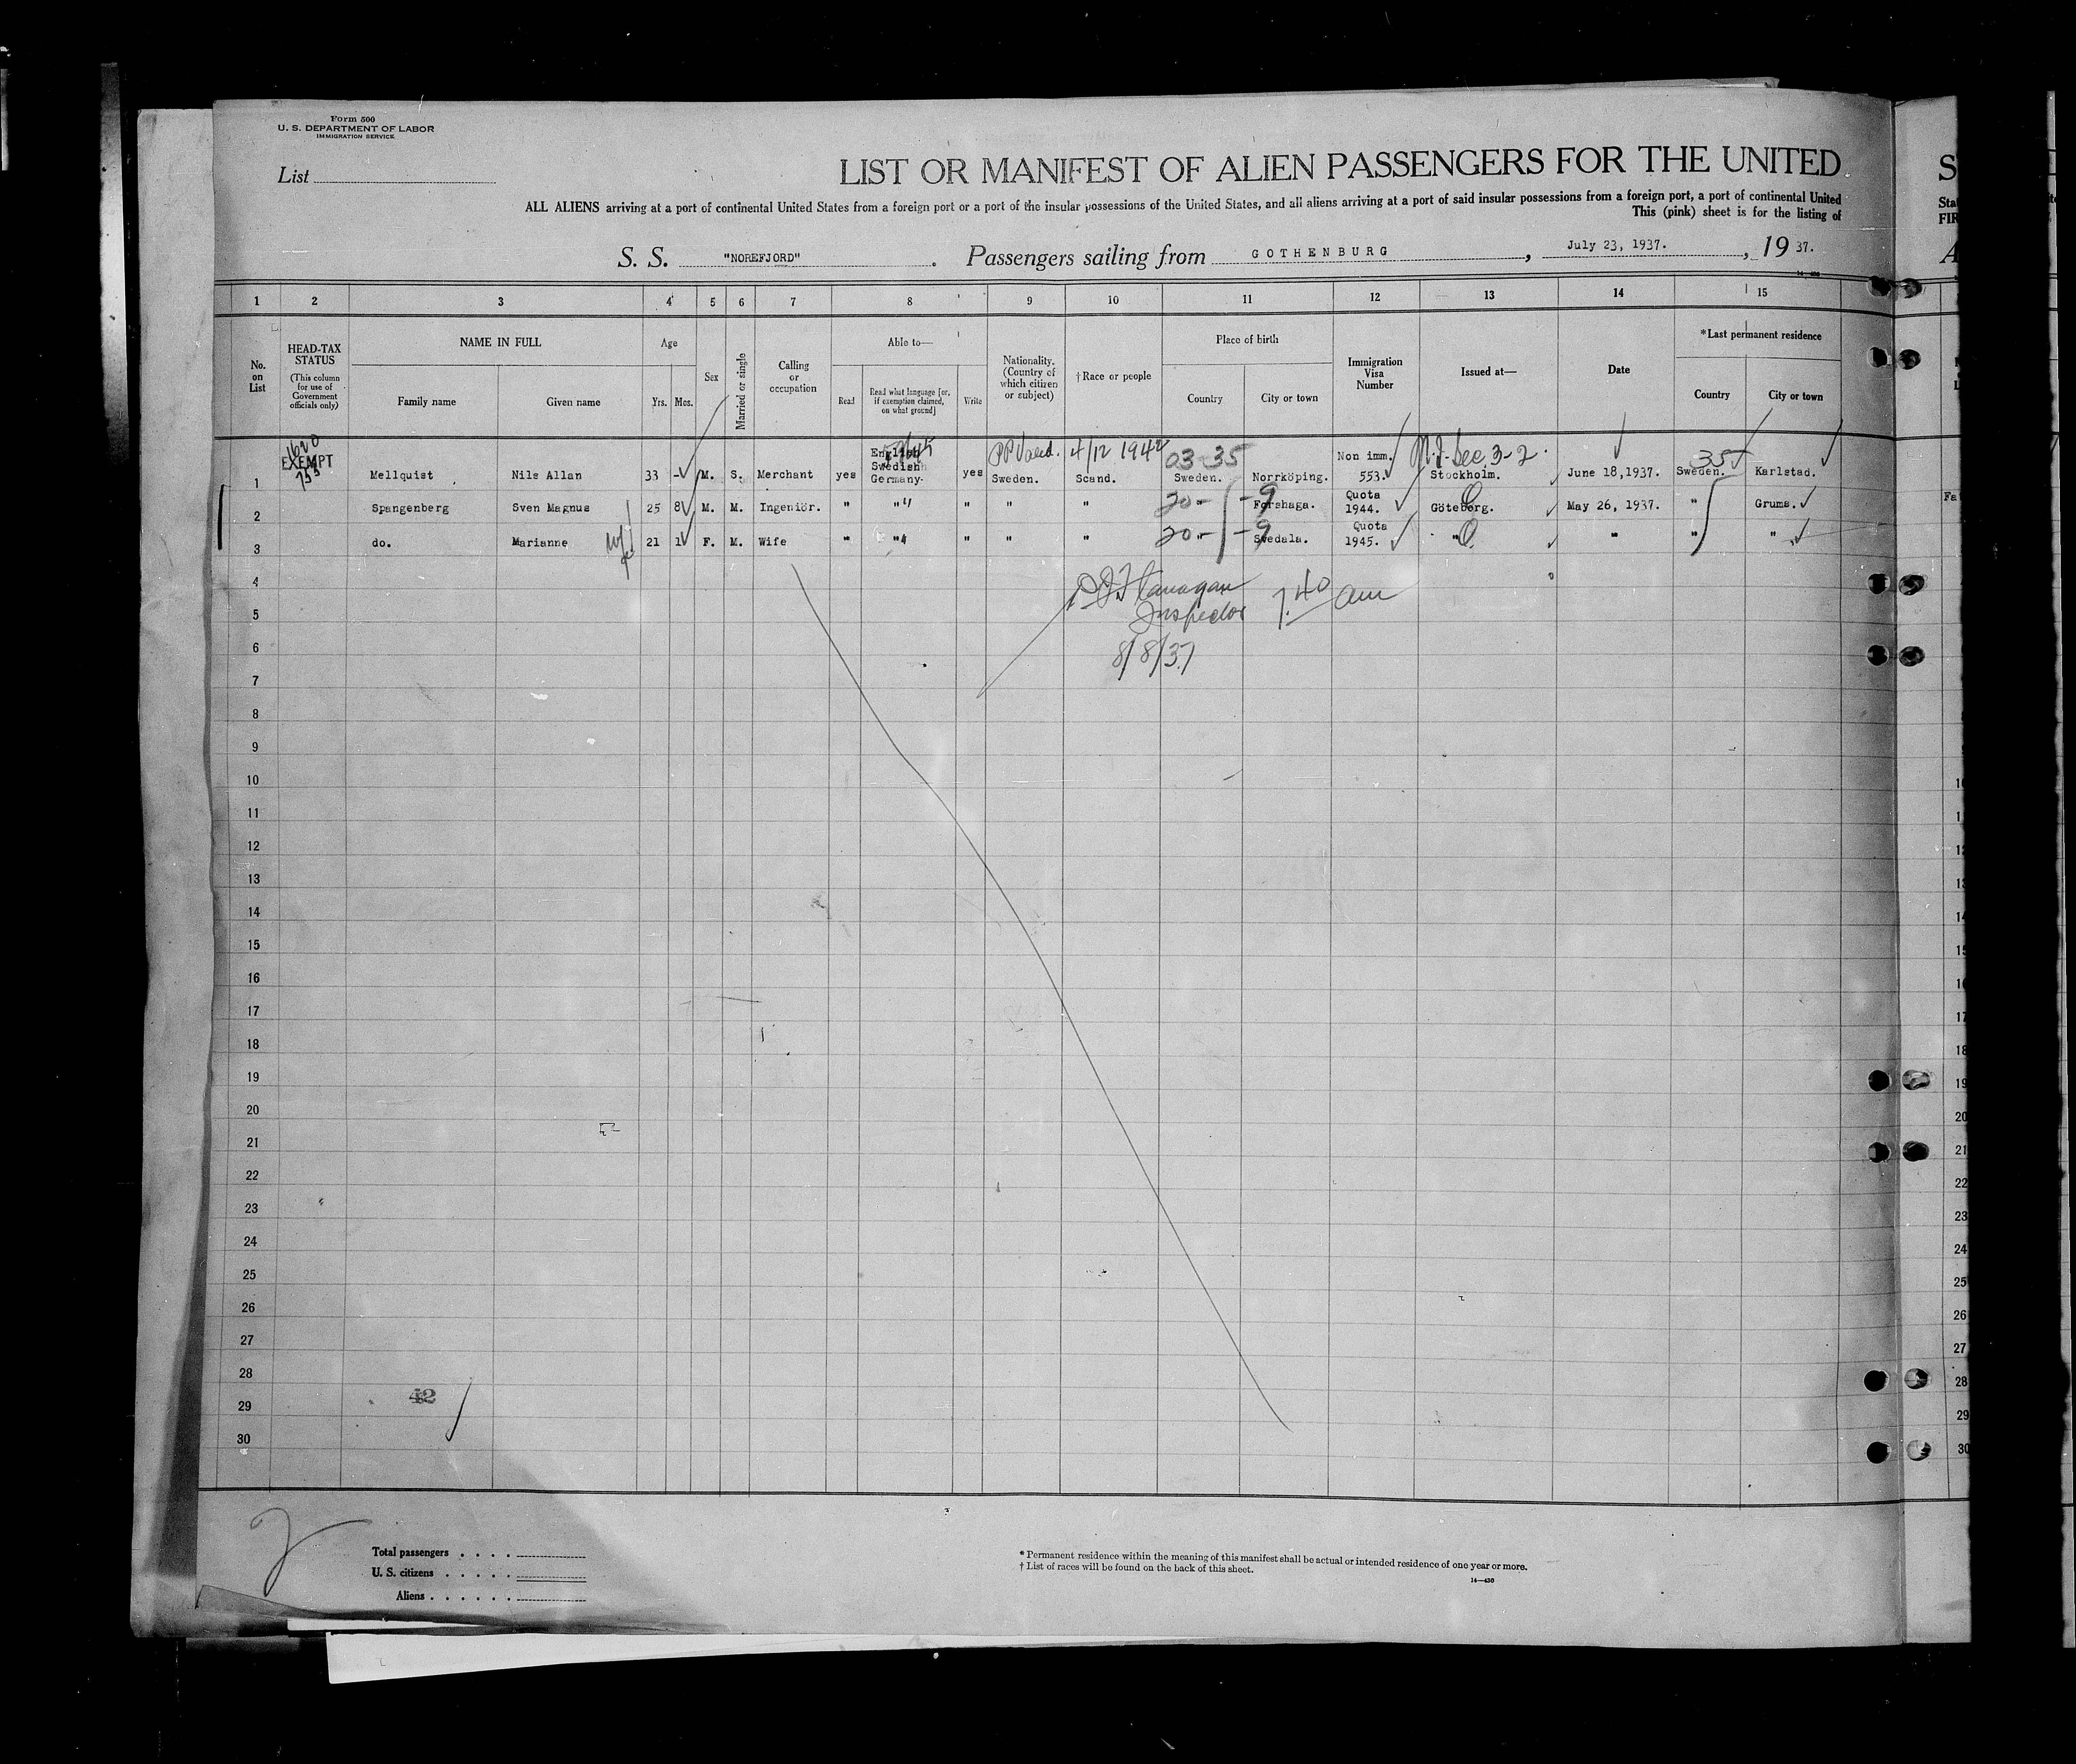 Form 500
U. S. DEPARTMENT OF LABOR
IMMIGRATION SERVICE
List
LIST OR MANIFEST OF ALIEN PASSENGERS FOR THE UNITED
ALL ALIENS arriving at a port of continental United States from a foreign port or a port of the insular possessions of the United States, and all aliens arriving at a port of said insular possessions from a foreign port, a port of continental United
This (pink) sheet is for the listing of
S. S. "NOREFJORD". Passengers sailing from GOTHENBURG, July 23, 1937., 19 37.
1 2 3 4 5 6 7 8 9 10 11 12 13 14 15
No. on List
HEAD-TAX STATUS (This column for use of Government officials only)
NAME IN FULL
Family name
Given name
Age
Yrs. Mos.
Sex
Married or single
Calling or occupation
Able to—
Read
Read what language [or, if exemption claimed, on what ground]
Write
Nationality. (Country of which citizen or subject)
†Race or people
Place of birth
Country
City or town
Immigration Visa Number
Issued at—
Date
*Last permanent residence
Country
City or town
1 EXEMPT Mellquist Nils Allan 33 - M. S. Merchant yes English Swedish Germany. yes Sweden. Scand. Sweden. Norrköping. Non imm. 553. Stockholm. June 18,1937. Sweden. Karlstad.
4/12 1942 03-35 Sec. 3-2. 35
2 Spangenberg Sven Magnus 25 8 M. M. Ingeniör. " " " " " 20 - - 9 Forshaga. Quota 1944. Göteborg. May 26, 1937. " Grums.
3 do. Marianne 21 1 F. M. Wife " " " " " 20 " - 9 Svedala. Quota 1945. " " " "
4
Flanagan
5
Inspector 7.40 am
6
8/8/37
7
8
9
10
11
12
13
14
15
16
17
18
19
20
21
22
23
24
25
26
27
28
42
29
30
Total passengers
U. S. citizens
Aliens
* Permanent residence within the meaning of this manifest shall be actual or intended residence of one year or more.
† List of races will be found on the back of this sheet.
14—430